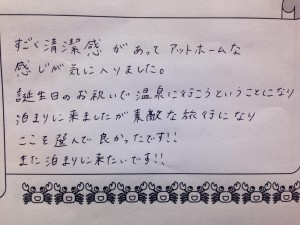 すごく清潔感があってアットホームな
感じが気に入りました。
誕生日のお祝いで温泉に行こうということになり
泊まりに来ましたが素敵な旅行になり
ここを選んで良かったです!!
また泊まりに来たいです!!